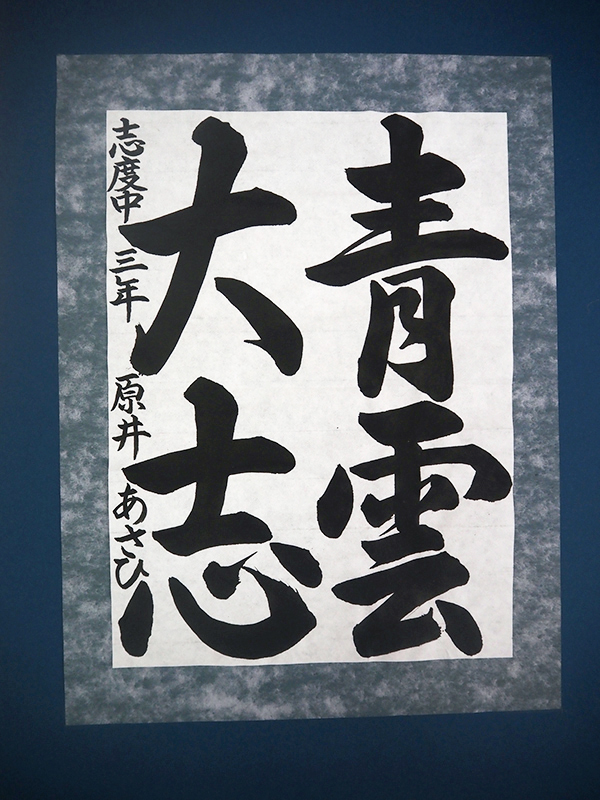 青雲
大志
志度中 三年 原井 あさひ